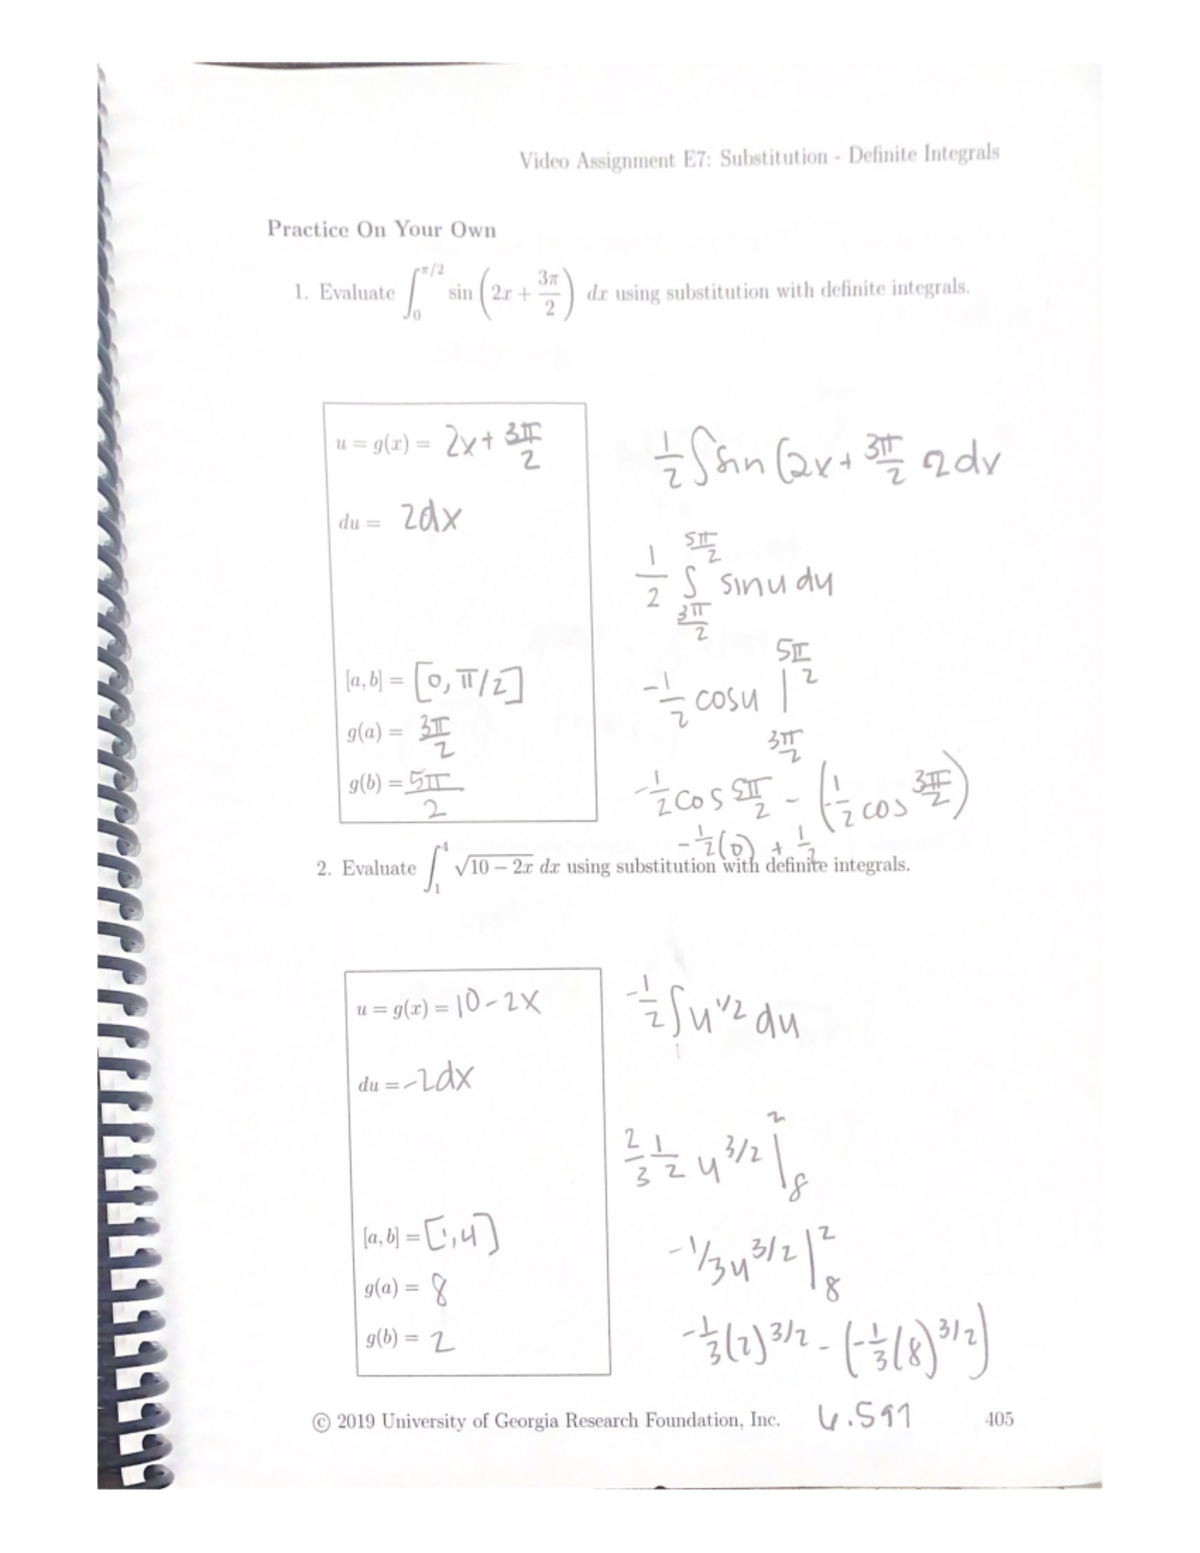 Video Assignment E7: Substitution - Definite Integrals
Practice On Your Own
1. Evaluate ∫₀^{π/2} sin (2x + 3π/2) dx using substitution with definite integrals.
u = g(x) = 2x + 3π/2
du = 2dx
[a, b] = [0, π/2]
g(a) = 3π/2
g(b) = 5π/2
1/2 ∫ sin (2x + 3π/2 2dx
1/2 ∫_{3π/2}^{5π/2} sin u du
-1/2 cos u |_{3π/2}^{5π/2}
-1/2 cos 5π/2 - (-1/2 cos 3π/2)
-1/2(0) + 1/2
2. Evaluate ∫₁⁴ √(10 − 2x) dx using substitution with definite integrals.
u = g(x) = 10-2x
du = -2dx
[a, b] = [1,4]
g(a) = 8
g(b) = 2
-1/2 ∫ u^{1/2} du
2/3 1/2 u^{3/2} |_8^2
-1/3 u^{3/2} |_8^2
-1/3 (2)^{3/2} - (-1/3 (8)^{3/2})
6.599
© 2019 University of Georgia Research Foundation, Inc.
405